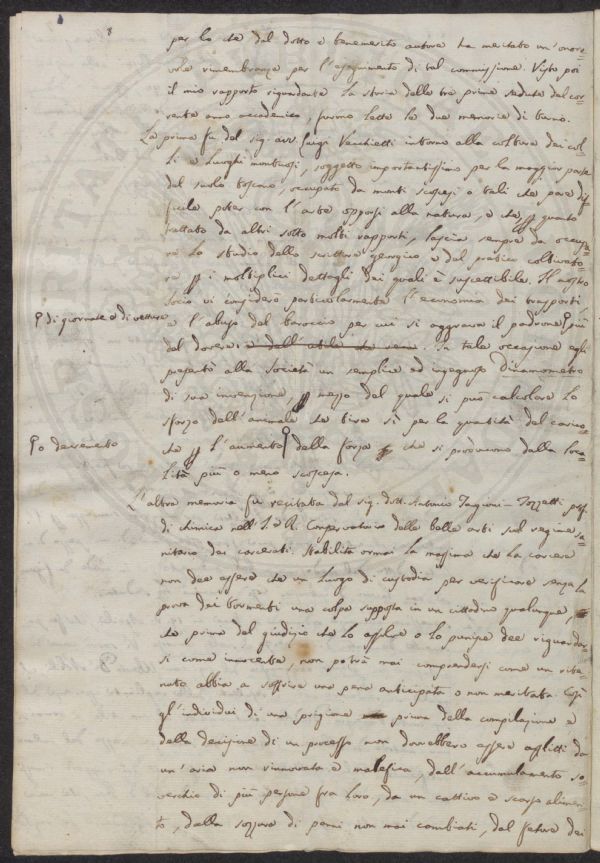 per lo che dal dotto e benemerito autore ha meritato un'onore-
vole rimembranza per l'eseguimento di tal commissione. Visto poi
il mio rapporto riguardante la storia delle tre prime sedute del cor-
rente anno accademico, furono lette le due memorie di turno.
La prima fu del sig. avv. Luigi Vecchietti intorno alla coltura dei col-
li e luoghi montuosi, soggetto importantissimo per la maggior parte
del suolo toscano, occupato da monti scoscesi e tali che pare dif-
ficile poter con l'arte opporsi alla natura, e che quanto
trattato da altri sotto molti rapporti, lascia sempre da occupa-
re lo studio dello scrittore georgico e del pratico coltivato-
re i moltiplici dettagli dei quali è suscettibile. Il nostro
socio vi considerò particolarmente l'economia dei trasporti
di giornate e di vetture
e l'abuso del baroccio per cui si aggrava il padrone più
del dovere In tale occasione egli
presentò alla Società un semplice ed ingegnoso Dinamometro
di sua invenzione, mezzo del quale si può calcolare lo
sforzo dell'animale che tira sì per la quantità del carico,
o decremento
che l'aumento della forza che si producono dalla loca-
lità più o meno scoscesa.
L'altra memoria fu recitata dal sig. dott. Antonio Targioni-Tozzetti prof.
di chimica nell'I. e R. Conservatorio delle belle arti sul regime sa-
nitario dei carcerati. Stabilita ormai la massima che la carcere
non dee essere che un luogo di custodia per verificare senza la
prova dei tormenti una colpa supposta in un cittadino qualunque,
che prima del giudizio che lo assolve o lo punisce dee riguardar-
si come innocente, non potrà mai comprendersi come un rite-
nuto abbia a soffrire una pena anticipata e non meritata. Così
gl'individui di una prigione prima della compilazione e
della decisione di un processo non dovrebbero essere afflitti da
un'aria non rinnovata e malefica, dall'accumulamento so-
verchio di più persone fra loro, da un cattivo e scarso alimen-
to, dalla sozzura di panni non mai cambiati, dal fetore dei